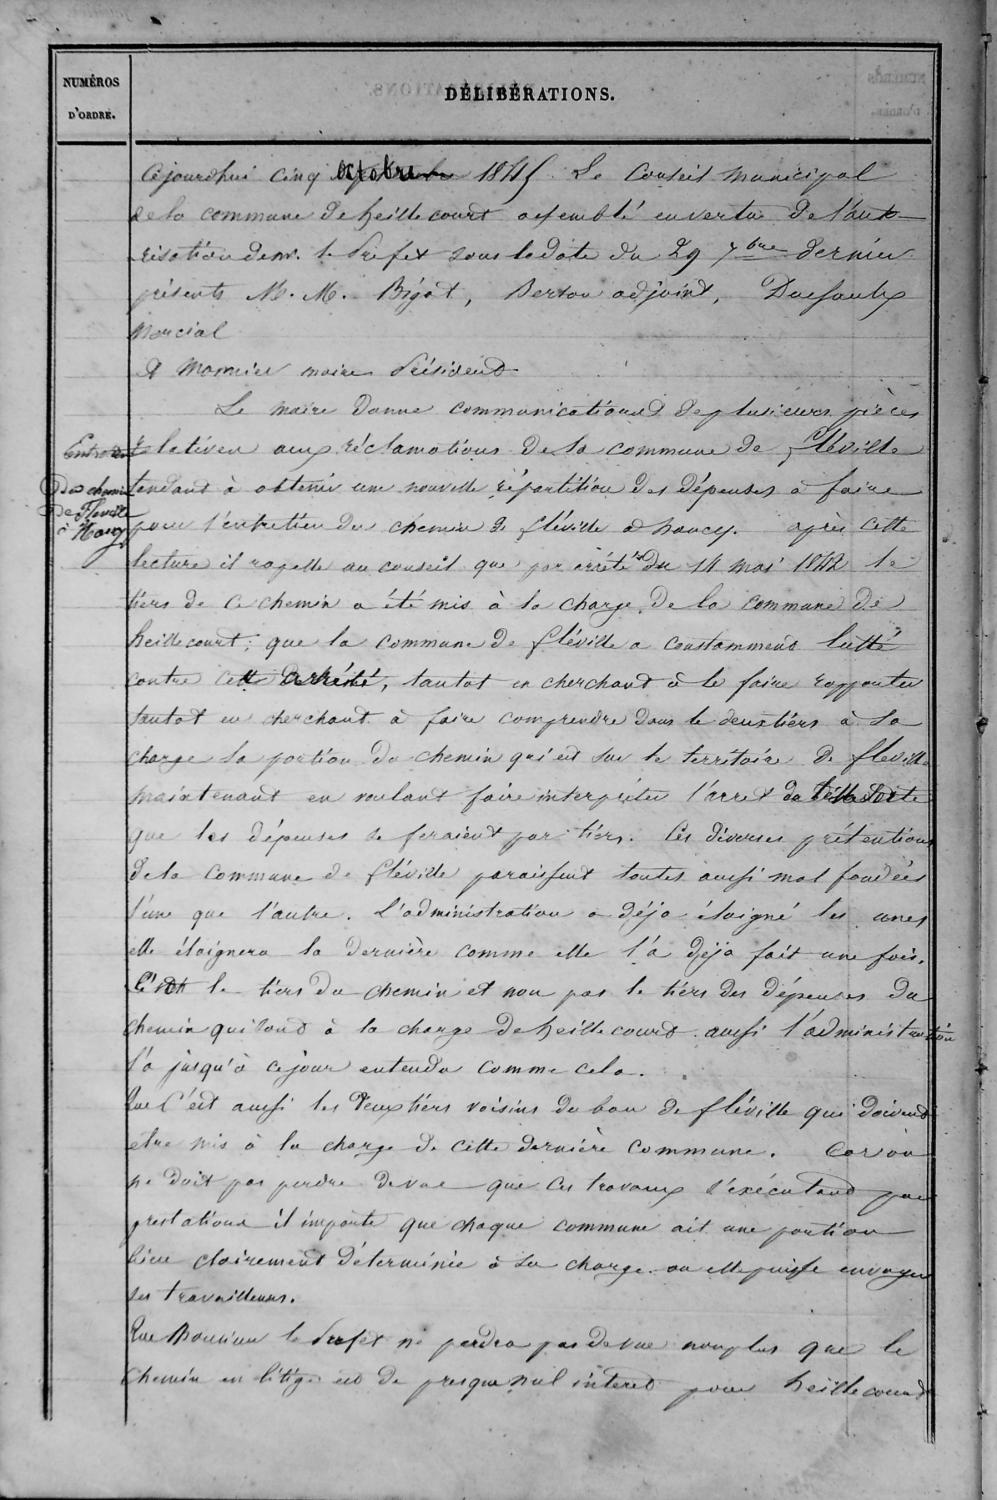 NUMÉROS
D'ORDRE.
DÉLIBÉRATIONS.
Cejourdhui cinq octobre 1845 Le Conseil municipal
de la commune de heillecourt assemblé en vertu de l'auto
risation de mr. le Prefet sous la date du 29 7bre dernier
présents M. M. Bigot, Berton adjoint,
Marcial
et Monnier maire Président
Le maire donne communication de plusieurs pièces
Entretien
du chemin
de Fléville
à Nancy
relatives aux réclamations de la commune de fléville
tendant à obtenir une nouvelle répartition des dépenses à faire
pour l'entretien du chemin de fléville à nancy. après cette
lecture il rapelle au conseil que par arrété du 14 mai 1842 le
tiers de ce chemin a été mis à la charge de la commune de
heillecourt; que la commune de fléville a constamment lutté
contre cette arrété, tantot en cherchant à le faire rapporter
tantot en cherchant à faire comprendre dans le deux tiers à sa
charge la portion du chemin qui est sur le territoire de fleville
maintenant en voulant faire interpréter l'arret de telle sorte
que les dépenses se feraient par tiers. Ces diverses prétentions
de la commune de fléville paraissent toutes aussi mal fondées
l'une que l'autre. L'administration a déja éloigné les unes
elle éloignera la dernière comme elle l'a déja fait une fois.
C'est le tiers du chemin et non pas le tiers des dépenses du
chemin qui sont à la charge de heillecourt. aussi l'administration
l'a jusqu'à ce jour entendu comme cela.
Que C'est aussi les deux tiers voisins du ban de fléville qui doivent
etre mis à la charge de cette dernière commune. Car on
ne doit pas perdre de vue que ces travaux s'exécutant par
prestations il importe que chaque commune ait une portion
bien clairement déterminée à sa charge ou elle puisse envoyer
ses travailleurs.
Que Monsieur le Prefet ne perdra pas de vue non plus que le
chemin en litige est de presque nul interet pour heillecourt